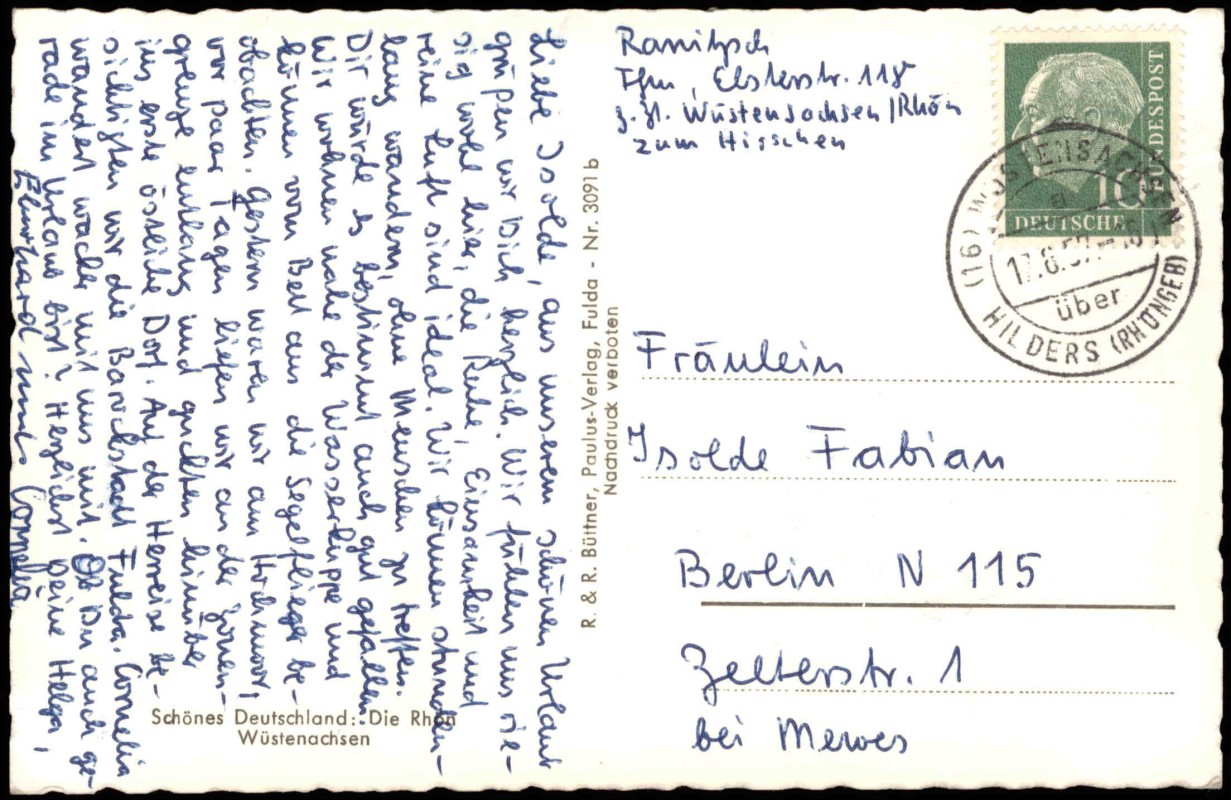 Liebe Isolde, aus unserem schönen Urlaub
grüßen wir Dich herzlich. Wir fühlen uns rie-
sig wohl hier, die Ruhe, Einsamkeit und
reine Luft sind ideal. Wir können stunden-
lang wandern, ohne Menschen zu treffen.
Dir würde es bestimmt auch gut gefallen.
Wir wohnen nahe der Wasserkuppe und
können vom Bett aus die Segelflieger be-
obachten. Gestern waren wir am
vor paar Tagen liefen wir an der Zonen-
grenze entlang und guckten hinüber
ins erste östliche Dorf. Auf der Herreise be-
sichtigten wir die Barockstadt Fulda. Cornelia
wandert wacker mit uns mit. Ob Du auch ge-
rade im Urlaub bist? Herzlichst Deine Helga,
und Cornelia
Schönes Deutschland: Die Rhön
Wüstenachsen
R. & R. Büttner, Paulus-Verlag, Fulda - Nr. 3091 b
Nachdruck verboten
Ranitzsch
Ffm, Elsterstr. 118
z. Zt. Wüstensachsen/Rhön
zum Hirschen
DEUTSCHE
BUNDESPOST
10
(16) WÜSTENSACHSEN
17.8.57.-18
über
HILDERS (RHÖNGEB)
Fräulein
Isolde Fabian
Berlin N 115
Zelterstr. 1
bei Mewes